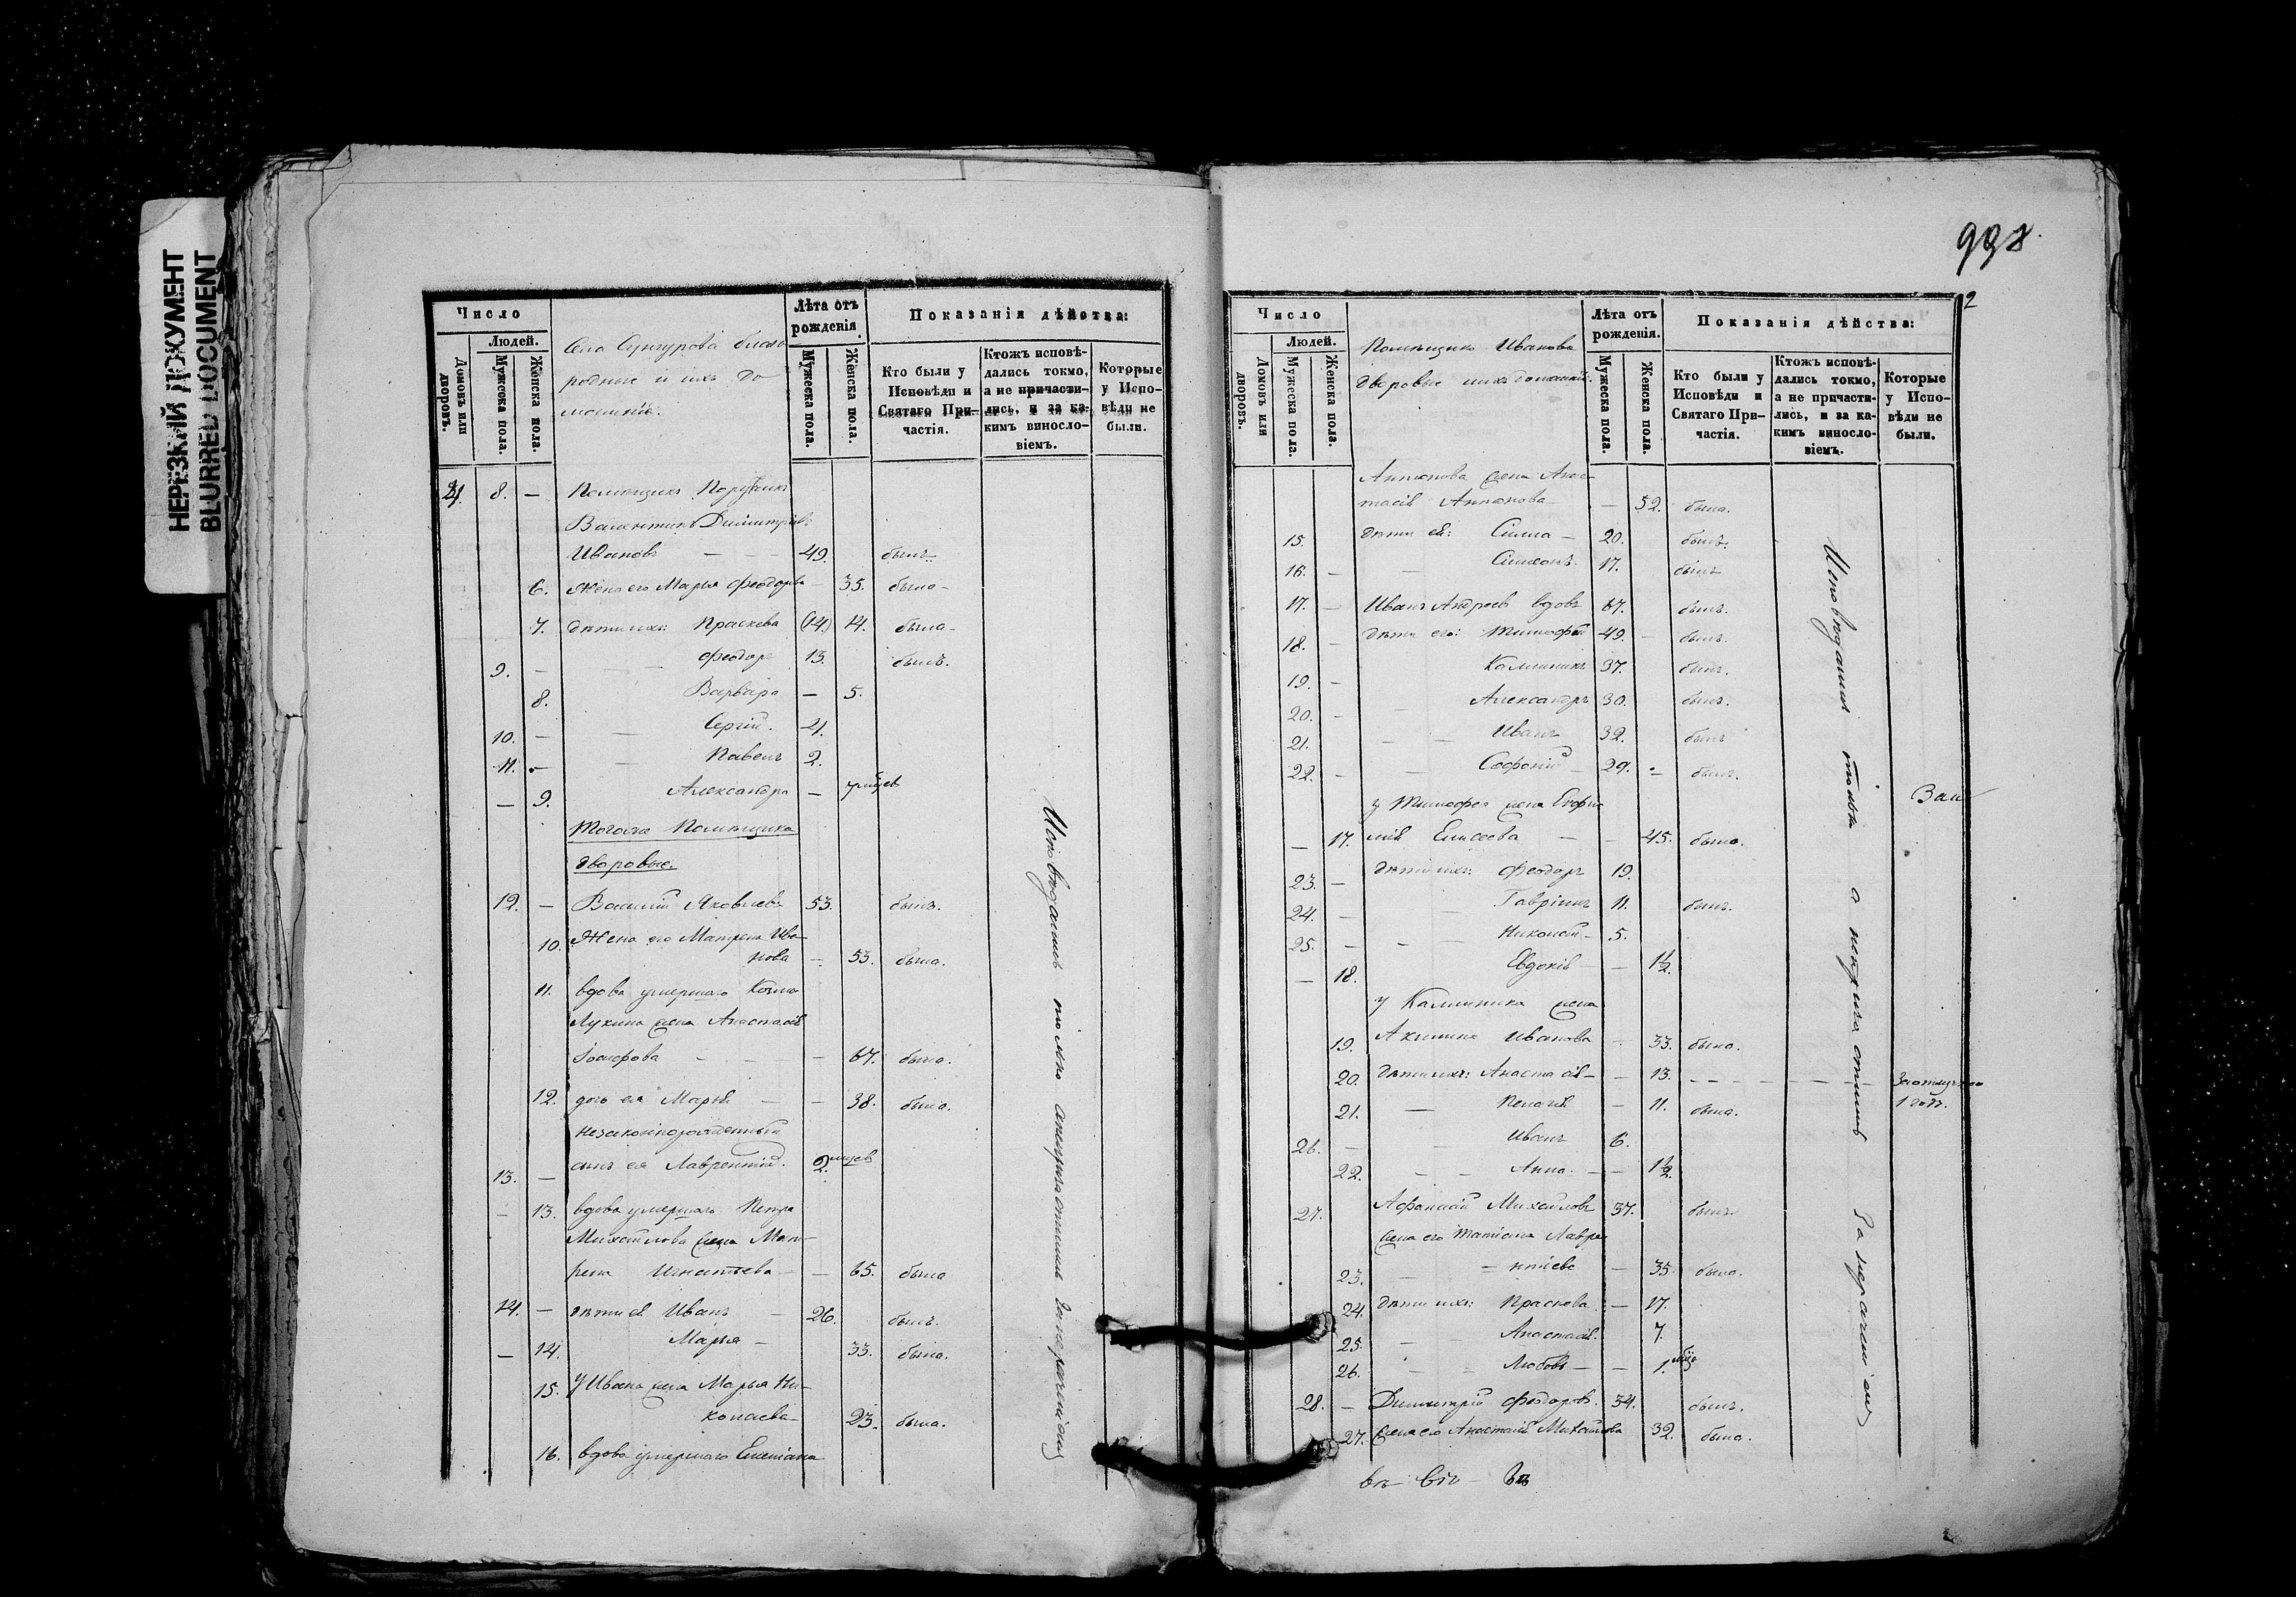 НЕРЕЗКИЙ ДОКУМЕНТ
BLURRED DOCUMENT
Число
Людей.
Домовъ или дворовъ.
Мужеска пола.
Женска пола.
Села Сунгурова благо
родные и ихъ до
машніе.
Лѣта отъ рожденія.
Мужеска пола.
Женска пола.
Показанія дѣйства:
Кто были у Исповѣди и Святаго Причастія.
Ктожъ исповѣдались токмо, а не причастились, и за какимъ винословіемъ.
Которые у Исповѣди не были.
8. — Помѣщикъ Порутчикъ
Валентинъ Димитріевъ
Ивановъ — — 49. былъ.
6. Жена его Марья Феодорова — 35. была
7. дѣти ихъ: Праскева (14.) 14. была
9. — — Феодоръ 13. былъ.
8. Варвара — 5.
10. — — Сергій. 4.
11. — — Павелъ 2.
— 9. Александра —
Тогоже Помѣщика
дворовые.
12. — Василій Яковлевъ 53. былъ.
10. Жена его Матрена Ива
нова — 53. была.
11. вдова умершаго Козмы
Лукина жена Анастасія
— — 67. была.
12. дочь ея Марья — — 38. была.
незаконнорожденный
13. — сынъ ея Лаврентій. 2. мѣсяцев
— 13. вдова умершаго Петра
Михайлова жена Мат
рена Игнатьева — — 65. была
14. — дѣти ея Иванъ — 26. былъ.
— 14. Марья — 33. была.
15. У Ивана жена Марья Ни
колаева 23. была.
16. вдова умершаго Емельяна
Исповѣдались токмо а непричастились за нераченіемъ
938.
2
Число
Людей.
Домовъ или дворовъ.
Мужеска пола.
Женска пола.
Помѣщика Иванова
дворовые и ихъ домашніе.
Лѣта отъ рожденія.
Мужеска пола.
Женска пола.
Показанія дѣйства:
Кто были у Исповѣди и Святаго Причастія.
Ктожъ исповѣдались токмо, а не причастились, и за какимъ винословіемъ.
Которые у Исповѣди не были.
Антонова жена Анас
тасія Антонова — 52. была.
15. дѣти ея: Симма — 20. былъ.
16. — — Симеонъ. 17. былъ
17. — Иванъ Андреевъ вдовъ 67. былъ.
18. — Дѣти его: Тимофей 49. — былъ.
19. — Калинникъ 37. былъ.
20. — — Александръ 30. былъ.
21. — — Иванъ 32. былъ
22. — — Софоній 29. — былъ.
у Тимофея жена Евфи
— 17. мія Елисеева — — 45. была.
23. — дѣти ихъ: Феодоръ 19.
24. — — Гавріилъ 11. былъ.
25. — — 5.
— 18. Евдокія — — 1½.
у Калинника жена
19. Акилина Иванова — 33. была.
20. Дѣти ихъ: Анастасія — — 13. — — — За отлуч
21. — Пелагія — 11. была. 1 годъ.
26. — — Иванъ 6.
22. — — Анна. — — 1½.
27. Афанасій Михайловъ 37. былъ.
жена его Татіана Лавре
23. — нтіева — 35. была.
24. Дѣти ихъ: Праскева. — 17.
25. — Анастасія. 7.
26. — — Любовь — — 1.
28. — Димитрій Феодоровъ. 34. былъ.
27. Жена его Анастасія Михайлова 32. была.
Исповѣдались токмо а непричастились За нераченіемъ